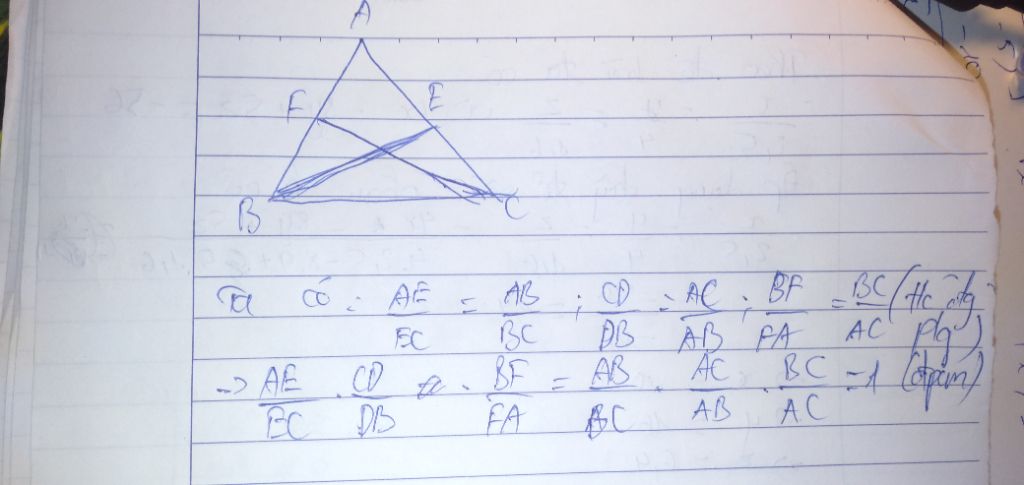 A
F E
B C
Ta có : AE/EC = AB/BC ; CD/DB = AC/AB ; BF/FA = BC/AC (t/c đg
plg)
-> AE/EC . CD/DB . BF/FA = AB/BC . AC/AB . BC/AC = 1 (đpcm)